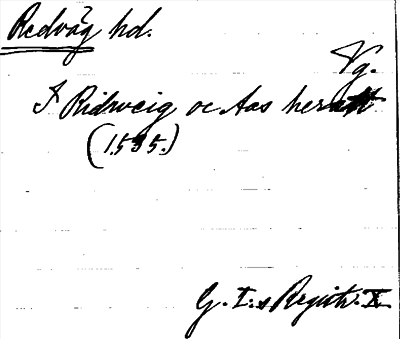 Redväg hd.
Vg.
I Ridweig oc Aas heratt
(1535.)
G. I:s Registr. X.